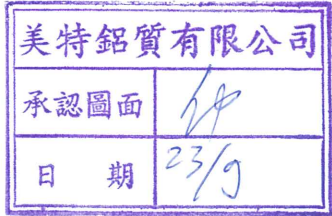 美特鋁質有限公司
承認圖面
日 期 23/9